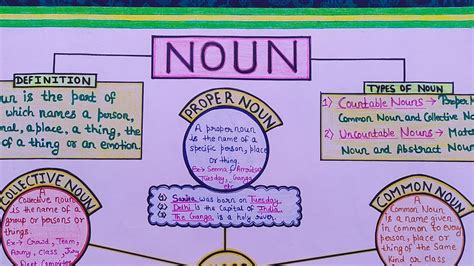 NOUN
DEFINITION
un is the part of
which names a person,
mal, a place, a thing, the
of a thing or an emotion.
TYPES OF NOUN
1) Countable Nouns → Proper
Common Noun and Collective No
2) Uncountable Nouns → Mat
Noun and Abstract Noun
PROPER NOUN
A proper noun
is the name of a
specific person, place
or thing.
Ex → Seema, Amritsar
Tuesday, Ganga
etc
① Sarita was born on Tuesday.
② Delhi is the Capital of India.
③ The Ganga is a holy river.
COLLECTIVE NOUN
A
Collective noun
is the name of a
group or persons or
things.
Ex → Crowd, Team,
Army, Class, Jury
Fleet, Committee
COMMON NOUN
A
Common Noun
is a name given
in common to every
person, place or
thing of the Same
Kind or Class